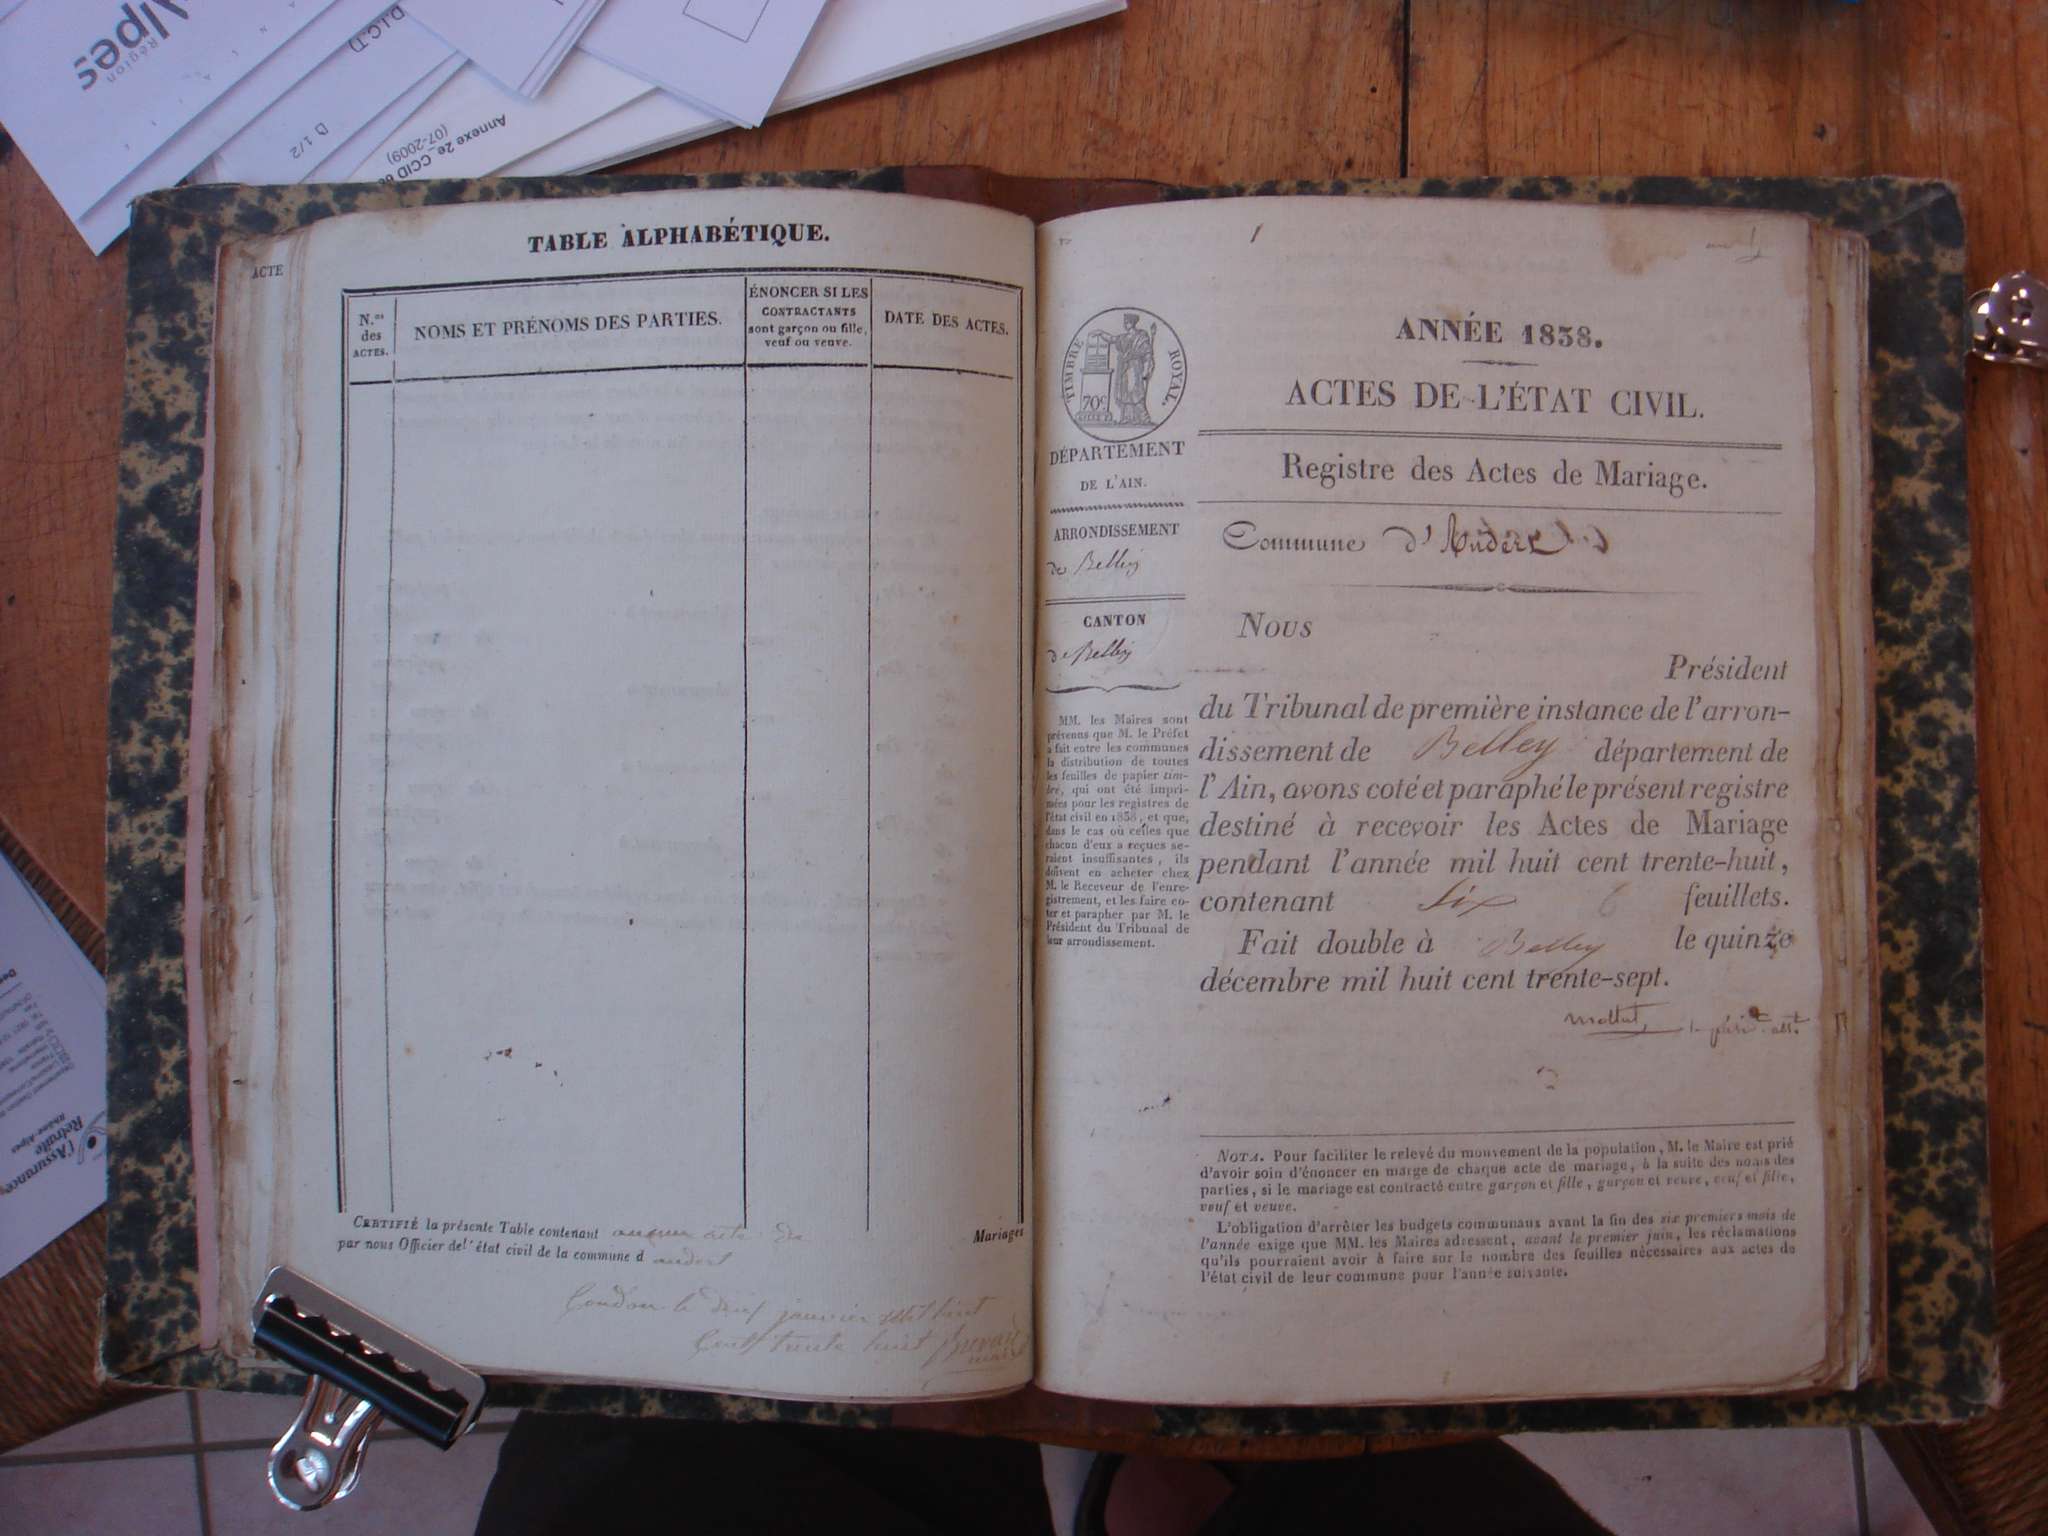 Région
Alpes
D.I.C.T)
D 1/2
Annexe 2e_CCID
(07-2009)
l'Assurance
Retraite
Rhône-Alpes
ACTE
TABLE ALPHABÉTIQUE.
N.os
des
ACTES.
NOMS ET PRÉNOMS DES PARTIES.
ÉNONCER SI LES
CONTRACTANTS
sont garçon ou fille,
veuf ou veuve.
DATE DES ACTES.
CERTIFIÉ la présente Table contenant aucun acte de Mariages
par nous Officier de l'état civil de la commune d andert
Condon le deux janvier mil huit
Cent trente huit
maire
1
TIMBRE ROYAL.
70c
DÉPARTEMENT
DE L'AIN.
ARRONDISSEMENT
de Belley
CANTON
de Belley
MM. les Maires sont
prévenus que M. le Préfet
a fait entre les communes
la distribution de toutes
les feuilles de papier tim-
bré, qui ont été impri-
mées pour les registres de
l'état civil en 1838, et que,
dans le cas où celles que
chacun d'eux a reçues se-
raient insuffisantes, ils
doivent en acheter chez
M. le Receveur de l'enre-
gistrement, et les faire co-
ter et parapher par M. le
Président du Tribunal de
leur arrondissement.
ANNÉE 1838.
ACTES DE L'ÉTAT CIVIL.
Registre des Actes de Mariage.
Commune d'Andert
Nous
Président
du Tribunal de première instance de l'arron-
dissement de Belley département de
l'Ain, avons coté et paraphé le présent registre
destiné à recevoir les Actes de Mariage
pendant l'année mil huit cent trente-huit,
contenant six 6 feuillets.
Fait double à Belley le quinze
décembre mil huit cent trente-sept.
NOTA. Pour faciliter le relevé du mouvement de la population, M. le Maire est prié
d'avoir soin d'énoncer en marge de chaque acte de mariage, à la suite des noms des
parties, si le mariage est contracté entre garçon et fille, garçon et veuve, veuf et fille,
veuf et veuve.
L'obligation d'arrêter les budgets communaux avant la fin des six premiers mois de
l'année exige que MM. les Maires adressent, avant le premier juin, les réclamations
qu'ils pourraient avoir à faire sur le nombre des feuilles nécessaires aux actes de
l'état civil de leur commune pour l'année suivante.